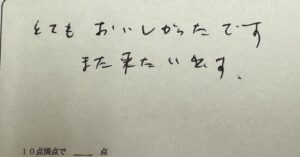 とても おいしかったです
また来たいです。
10点満点で ____ 点